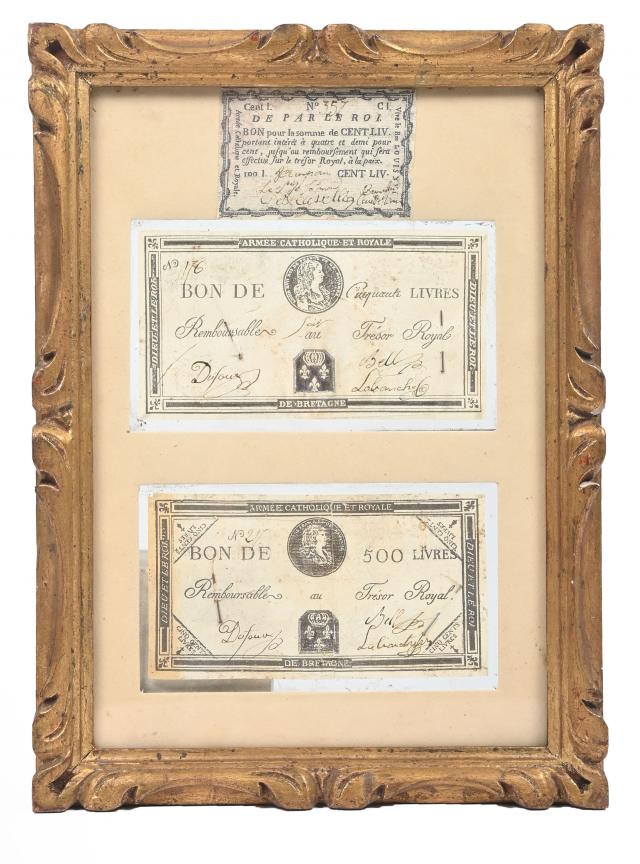 Cent l. N° 357 C l.
DE PAR LE ROI.
BON pour la somme de CENT LIV.
portant intérêt à quatre et demi pour
cent, jusqu'au remboursement qui sera
effectué sur le trésor Royal, à la paix.
100 l. CENT LIV.
Armée Catholique et Royale.
Vive le Roi LOUIS XVII
ARMÉE CATHOLIQUE ET ROYALE
N° 176
BON DE Cinquante LIVRES
Remboursable au Trésor Royal
Dufour Bell
Labranche
DIEU ET LE ROI
DIEU ET LE ROI
DE BRETAGNE
ARMÉE CATHOLIQUE ET ROYALE
N° 25
BON DE 500 LIVRES
Remboursable au Trésor Royal.
Dufour Bell
DIEU ET LE ROI
DIEU ET LE ROI
CINQ CENTS LIVRES
CINQ CENTS LIVRES
CINQ CENTS LIVRES
CINQ CENTS LIVRES
DE BRETAGNE